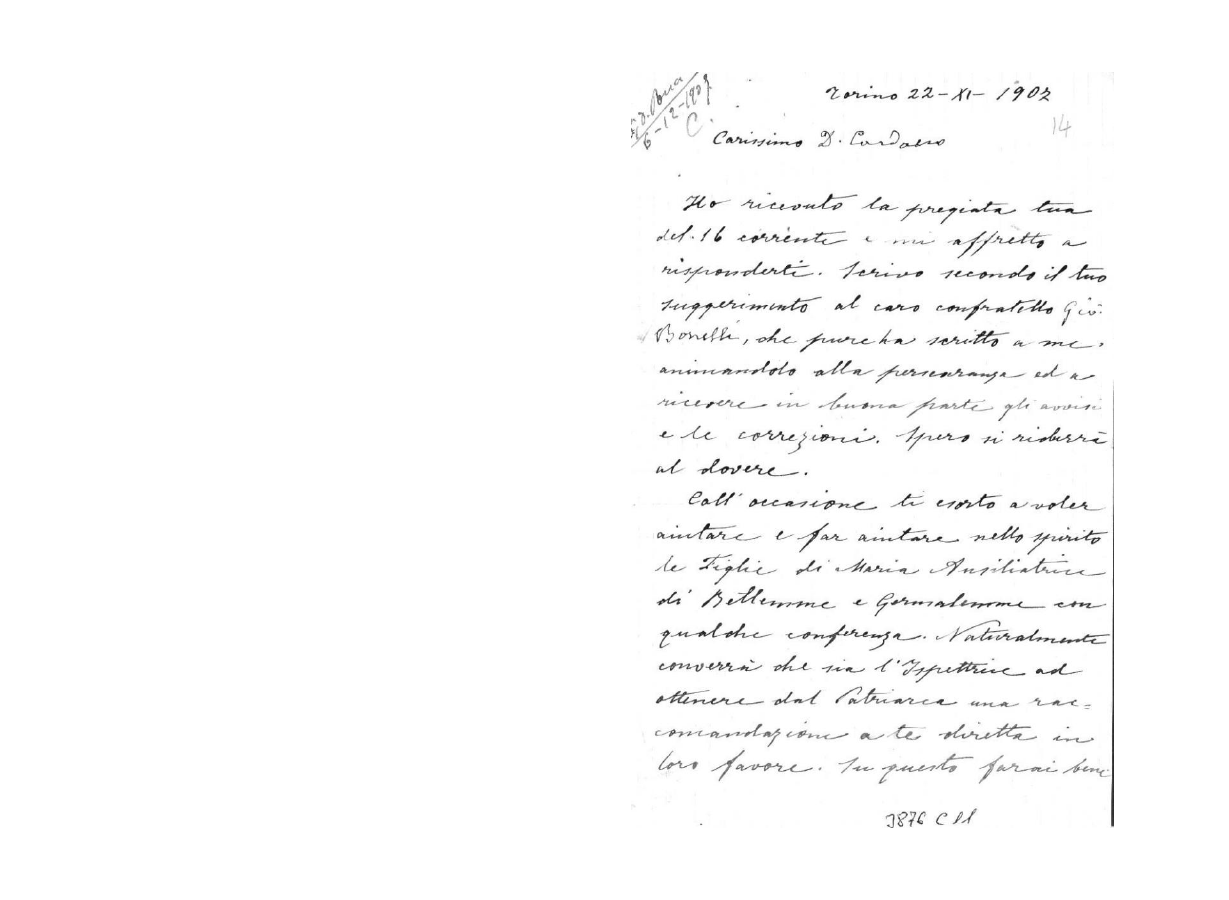 D. Rua
6-12-907
C.
Torino 22-XI-1907
14
Carissimo D.
Ho ricevuto la pregiata tua
del 16 corrente e mi affretto a
risponderti. Scrivo secondo il tuo
suggerimento al caro confratello Giò.
Bonelli, che pure ha scritto a me,
animandolo alla perseveranza ed a
ricevere in buona parte gli avvisi
e le correzioni. Spero si ridurrà
al dovere.
Coll' occasione ti esorto a voler
aiutare e far aiutare nello spirito
le Figlie di Maria Ausiliatrice
di Betlemme e Gerusalemme con
qualche conferenza. Naturalmente
converrà che sia l'Ispettrice ad
ottenere dal Patriarca una rac=
comandazione a te diretta in
loro favore. Su questo farai bene
3876 C11